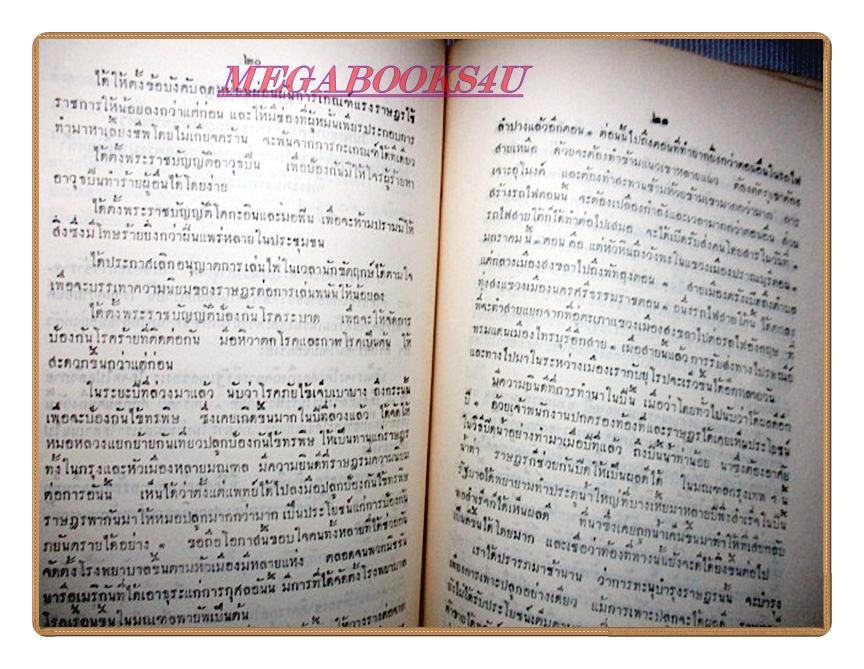 ๒๐
MEGABOOKS4U
ได้ให้ตั้งข้อบังคับลดหย่อนผ่อนผันการเกณฑ์แรงราษฎรใช้
ราชการให้น้อยลงกว่าแต่ก่อน และให้มีช่องที่ผู้หมั่นเพียรประกอบการ
ทำมาหาเลี้ยงชีพโดยไม่เกียจคร้าน จะพ้นจากการกะเกณฑ์ได้ทีเดียว
ได้ตั้งพระราชบัญญัติอาวุธปืน เพื่อป้องกันมิให้โจรผู้ร้ายหา
อาวุธปืนทำร้ายผู้อื่นได้โดยง่าย
ได้ตั้งพระราชบัญญัติโคกะอินและมอฟีน เพื่อจะห้ามปรามมิให้
สิ่งซึ่งมีโทษร้ายยิ่งกว่าฝิ่นแพร่หลายในประชุมชน
ได้ประกาศเลิกอนุญาตการเล่นไพ่ในเวลานักขัตฤกษ์ได้ตามใจ
เพื่อจะบรรเทาความนิยมของราษฎรต่อการเล่นพนันให้น้อยลง
ได้ตั้งพระราชบัญญัติป้องกันโรคระบาด เพื่อจะให้จัดการ
ป้องกันโรคร้ายที่ติดต่อกัน มีอหิวาตกโรคและกาฬโรคเป็นต้น ให้
สะดวกขึ้นกว่าแต่ก่อน
ในระยะปีที่ล่วงมาแล้ว นับว่าโรคภัยไข้เจ็บเบาบาง ถึงกระนั้น
เพื่อจะป้องกันไข้ทรพิษ ซึ่งเคยเกิดขึ้นมากในปีที่ล่วงแล้ว ได้จัดให้
หมอหลวงแยกย้ายกันเที่ยวปลูกป้องกันไข้ทรพิษ ให้เป็นทานแก่ราษฎร
ทั้งในกรุงและหัวเมืองหลายมณฑล มีความยินดีที่ราษฎรมีความนิยม
ต่อการอันนี้ เห็นได้ว่าตั้งแต่แพทย์ได้ไปลงมือปลูกป้องกันไข้ทรพิษ
ราษฎรพากันมาให้หมอปลูกมากกว่ามาก เป็นประโยชน์แก่การป้องกัน
ภยันตรายได้อย่าง ๑ ขอถือโอกาสนี้ขอบใจคนทั้งหลายที่ได้ช่วยกัน
จัดตั้งโรงพยาบาลขึ้นตามหัวเมืองมีหลายแห่ง ตลอดจนพวกมิชชัน
นารีอเมริกันที่ได้เอาธุระแก่การกุศลอันนี้ มีการที่ได้จัดตั้งโรงพยาบาล
โรคเรื้อนขึ้นในมณฑลพายัพเป็นต้น
๒๑
ลำปางแล้วอีกตอน ๑ ต่อนี้ไปถึงตอนที่ทำยากยิ่งกว่าตอนอื่นในรถไฟ
สายเหนือ ด้วยจะต้องทำข้ามแนวเขาหลายแนว ต้องตัดภูเขาต้อง
เจาะอุโมงค์ และต้องทำสะพานข้ามห้วยข้ามเขามากกว่ามาก การ
สร้างรถไฟตอนนี้ จะต้องเปลืองกำลังและเวลามากกว่าตอนอื่น ส่วน
รถไฟสายใต้ก็ได้ทำต่อไปเสมอ จะได้เปิดรับส่งคนโดยสารในวันที่ ๑
มกราคมนี้ ๓ ตอน คือ แต่หัวหินถึงวังพงในแขวงเมืองปราณบุรีตอน ๑
แต่กลางเมืองสงขลาไปถึงพัทลุงตอน ๑ สายเมืองตรังเปิดถึงตำบล
ทุ่งสงแขวงเมืองนครศรีธรรมราชตอน ๑ อนึ่งรถไฟสายใต้นี้ ได้ตกลง
ที่จะทำสายแยกจากที่อู่ตะเภาแขวงเมืองสงขลาไปต่อรถไฟอังกฤษ ที่
พรมแดนเมืองไทรบุรีอีกสาย ๑ เมื่อสายนี้แล้ว การรับส่งทางไปรษณีย์
และทางไปมาในระหว่างเมืองเรากับยุโรปจะเร็วขึ้นได้อีกหลายวัน
มีความยินดีที่การทำนาในปีนี้ เมื่อว่าโดยทั่วไปนับว่าได้ผลดีอีก
ปี ๑ ด้วยเจ้าพนักงานปกครองท้องที่และราษฎรได้เคยเห็นประโยชน์
ในวิธีปิดน้ำอย่างทำมาเมื่อปีที่แล้ว ถึงปีนี้น้ำท่าน้อย นาซึ่งต้องอาศัย
น้ำท่า ราษฎรก็ช่วยกันปิดให้เป็นผลดีได้ ในมณฑลกรุงเทพ ฯ นี้
รัฐบาลได้พยายามทำประตูน้ำใหญ่ที่บางเหี้ยมาหลายปีพึ่งสำเร็จในปีนี้
พอสำเร็จก็ได้เห็นผลดี ที่นาซึ่งเคยถูกน้ำเค็มขึ้นมาทำให้ที่เสียกลับ
เป็นดีขึ้นได้โดยมาก และเชื่อว่าท้องที่ทางนั้นยังจะดีได้ยิ่งขึ้นต่อไป
เราได้ปรารภมาช้านาน ว่าการทะนุบำรุงราษฎรนั้น จะบำรุง
เพียงการเพาะปลูกอย่างเดียว แม้การเพาะปลูกจะได้ผลดี
ยังไม่ได้รับประโยชน์เต็ม